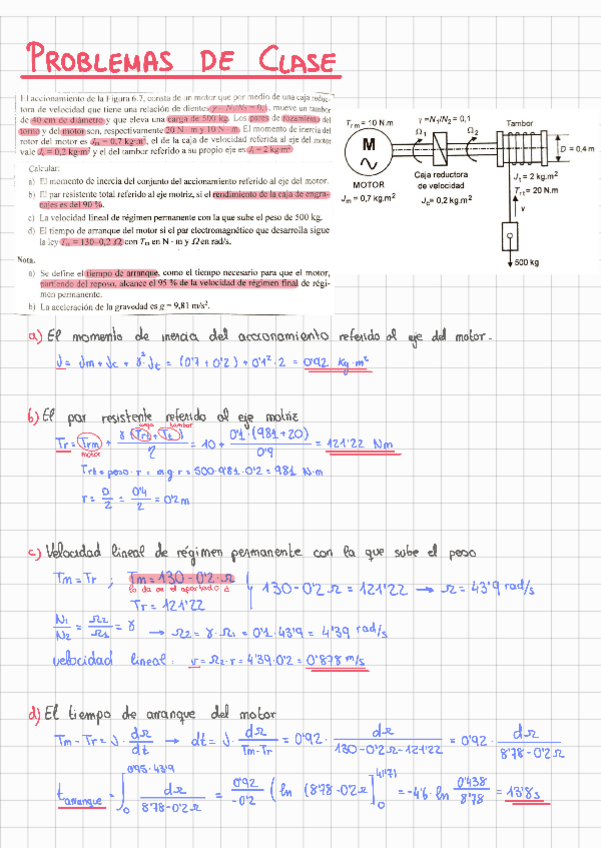 PROBLEMAS DE CLASE
El accionamiento de la Figura 6.7, consta de un motor que por medio de una caja reduc-
tora de velocidad que tiene una relación de dientes γ = N₁/N₂ = 0,1, mueve un tambor
de 40 cm de diámetro y que eleva una carga de 500 kg. Los pares de rozamiento del
torno y del motor son, respectivamente 20 N·m y 10 N·m. El momento de inercia del
rotor del motor es Jₘ = 0,7 kg·m², el de la caja de velocidad referida al eje del motor
vale J꜀ = 0,2 kg·m² y el del tambor referido a su propio eje es Jₜ = 2 kg·m².
Calcular:
a) El momento de inercia del conjunto del accionamiento referido al eje del motor.
b) El par resistente total referido al eje motriz, si el rendimiento de la caja de engra-
najes es del 90 %.
c) La velocidad lineal de régimen permanente con la que sube el peso de 500 kg.
d) El tiempo de arranque del motor si el par electromagnético que desarrolla sigue
la ley Tₘ = 130-0,2 Ω con Tₘ en N · m y Ω en rad/s.
Nota.
a) Se define el tiempo de arranque, como el tiempo necesario para que el motor,
partiendo del reposo, alcance el 95 % de la velocidad de régimen final de régi-
men permanente.
b) La aceleración de la gravedad es g = 9,81 m/s².
Tᵣₘ = 10 N.m
γ =N₁/N₂ = 0,1
Tambor
Ω₁
Ω₂
M
D = 0,4 m
MOTOR
Jₘ = 0,7 kg.m²
Caja reductora
de velocidad
J꜀= 0,2 kg.m²
Jₜ = 2 kg.m²
Tᵣₜ = 20 N.m
v
500 kg
a) El momento de inercia del accionamiento referido al eje del motor.
J = Jm + Jc + γ²·Jt = (0'7 + 0'2) + 0'1²·2 = 0'92 kg·m²
b) El par resistente referido al eje motriz
carga tambor
Tr = Trm + γ(Trt + Tt)/η = 10 + 0'1·(981+20)/0'9 = 121'22 Nm
motor
Trt = peso·r = m·g·r = 500·9'81·0'2 = 981 N·m
r = D/2 = 0'4/2 = 0'2m
c) Velocidad lineal de régimen permanente con la que sube el peso
Tm = Tr ; Tm = 130 - 0'2·Ω
lo da en el apartado d
Tr = 121'22
130 - 0'2 Ω = 121'22 → Ω = 43'9 rad/s
N₁/N₂ = Ω₂/Ω₁ = γ → Ω₂ = γ·Ω₁ = 0'1·43'9 = 4'39 rad/s
velocidad lineal: v = Ω₂·r = 4'39·0'2 = 0'878 m/s
d) El tiempo de arranque del motor
Tm - Tr = J·dΩ/dt → dt = J·dΩ/Tm-Tr = 0'92·dΩ/130-0'2Ω-121'22 = 0'92·dΩ/8'78-0'2Ω
t arranque = ∫₀^0'95·43'9 dΩ/8'78-0'2Ω = 0'92/-0'2 [ln (8'78-0'2Ω]₀^41'71 = -4'6·ln 0'438/8'78 = 13'8s